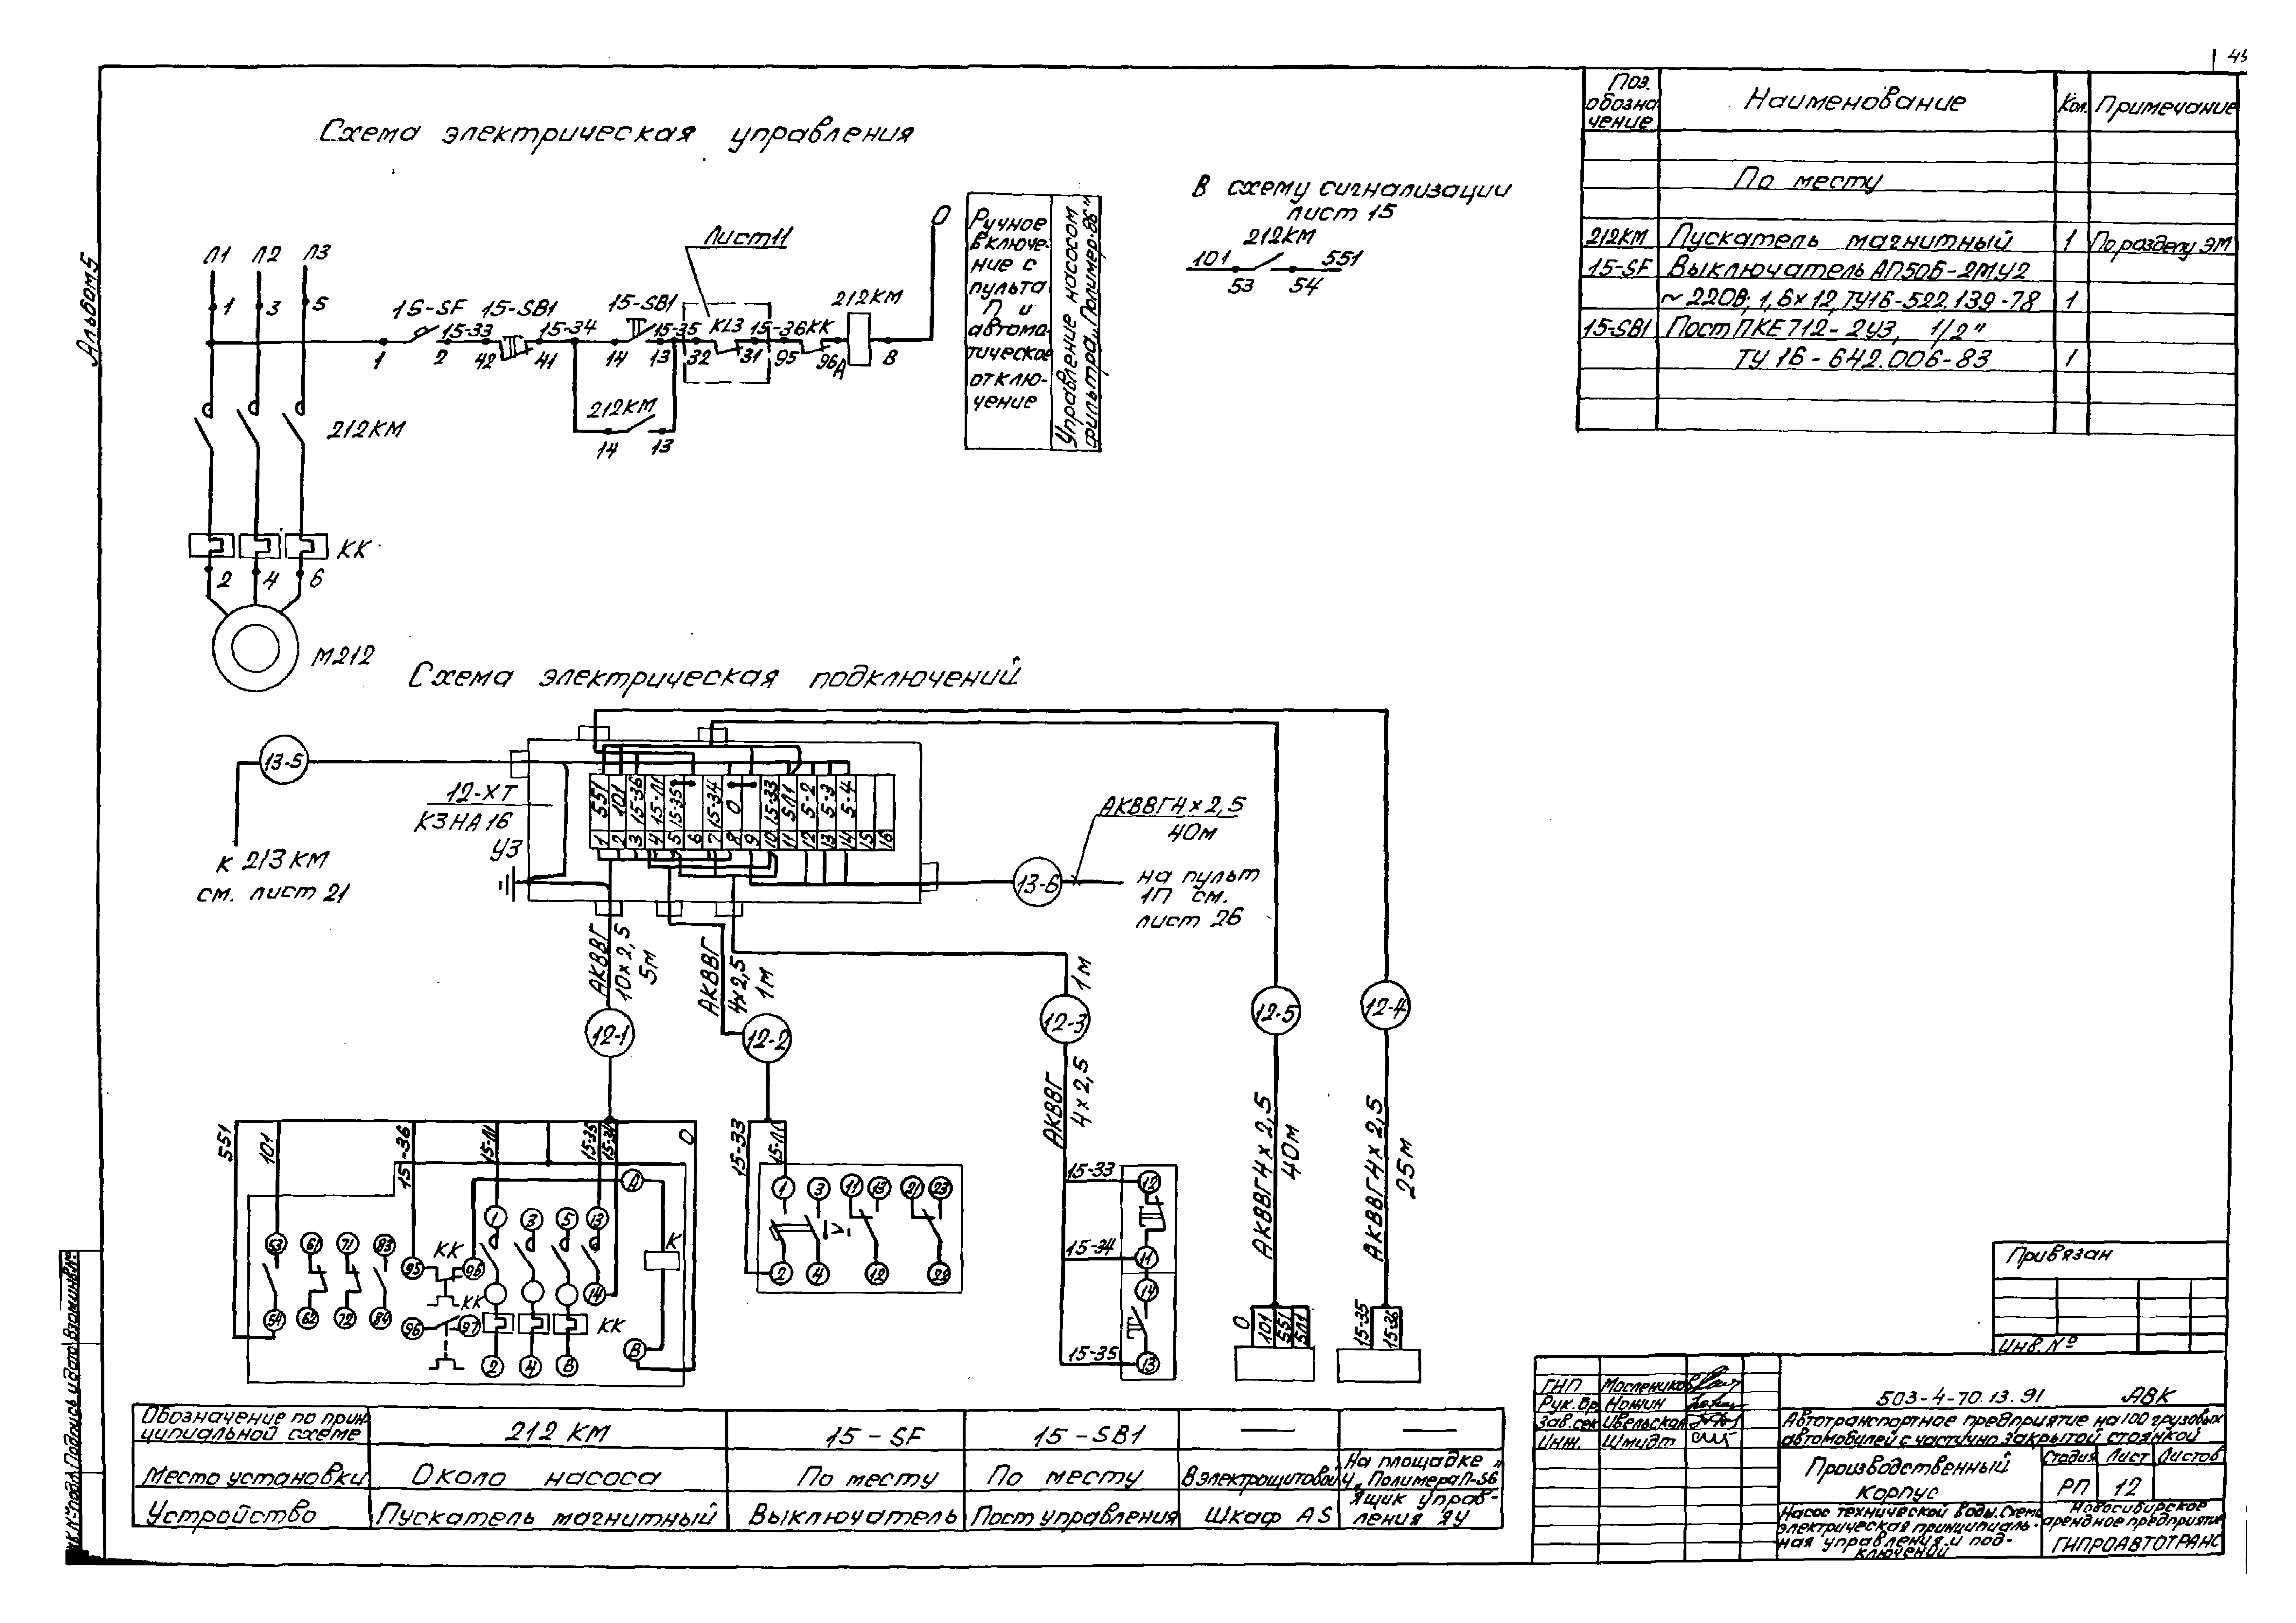 Альбом 5
Схема электрическая управления
Л1 Л2 Л3
1 3 5
15-SF 15-SB1 15-SB1
15-33 15-34 15-35 KL3 15-36 КК
Лист 11
212КМ
О
1 2 42 41 14 13 32 31 95 96 А В
212КМ
14 13
212КМ
КК
2 4 6
М212
Ручное
включе-
ние с
пульта
П и
автома-
тическое
отклю-
чение
Управление насосом
фильтра „Полимер-86"
В схему сигнализации
лист 15
212КМ
101 551
53 54
Поз. обозна чение | Наименование | Кол. | Примечание
По месту
212КМ Пускатель магнитный 1 По разделу ЭМ
15-SF Выключатель АП50Б-2МУ2
~220В; 1,6×12, ТУ16-522.139-78 1
15-SB1 Пост ПКЕ 712-2У3, 1/2"
ТУ 16-642.006-83 1
Схема электрическая подключений
13-5
К 213 КМ
см. лист 21
12-ХТ
КЗНА 16
У3
551 101 15-36 15-Л1 15-35 15-34 О 15-33 5Л1 5-2 5-3 5-4
1 2 3 4 5 6 7 8 9 10 11 12 13 14 15 16
АКВВГ4×2,5
40м
13-6
на пульт
1П см.
лист 26
АКВВГ
10×2,5
5м
12-1
АКВВГ
4×2,5
1м
12-2
1м
12-3
АКВВГ
4×2,5
12-5
АКВВГ4×2,5
40м
12-4
АКВВГ4×2,5
25м
551 101 15-36 15-Л1 15-35 15-34 О
53 61 71 83 95 КК 96 1 3 5 13 А К
54 62 72 84 96 97 КК 14 КК
2 4 В В
15-33 15-Л1
1 3 11 13 21 23
2 4 12 22
15-33 12
15-34 11
14
15-35 13
О 101 551 5Л1
15-35 15-36
Обозначение по прин-
ципиальной схеме | 212 КМ | 15-SF | 15-SB1 | — | —
Место установки | Около насоса | По месту | По месту | В электрощитовой | На площадке
Устройство | Пускатель магнитный | Выключатель | Пост управления | Шкаф AS | Ящик управ-
ления ЯУ
Привязан
Инв. №
ГНП
Рук. бр. Ножин
Зав. сек.
Инж. Шмидт
503-4-70.13.91 АВК
Автотранспортное предприятие на 100 грузовых
автомобилей с частично закрытой стоянкой
Производственный
корпус
Стадия Лист Листов
РП 12
Насос технической воды. Схема
электрическая принципиаль-
ная управления и под-
ключений
Новосибирское
арендное предприятие
ГИПРОАВТОТРАНС
Подпись и дата Взам.инв.№